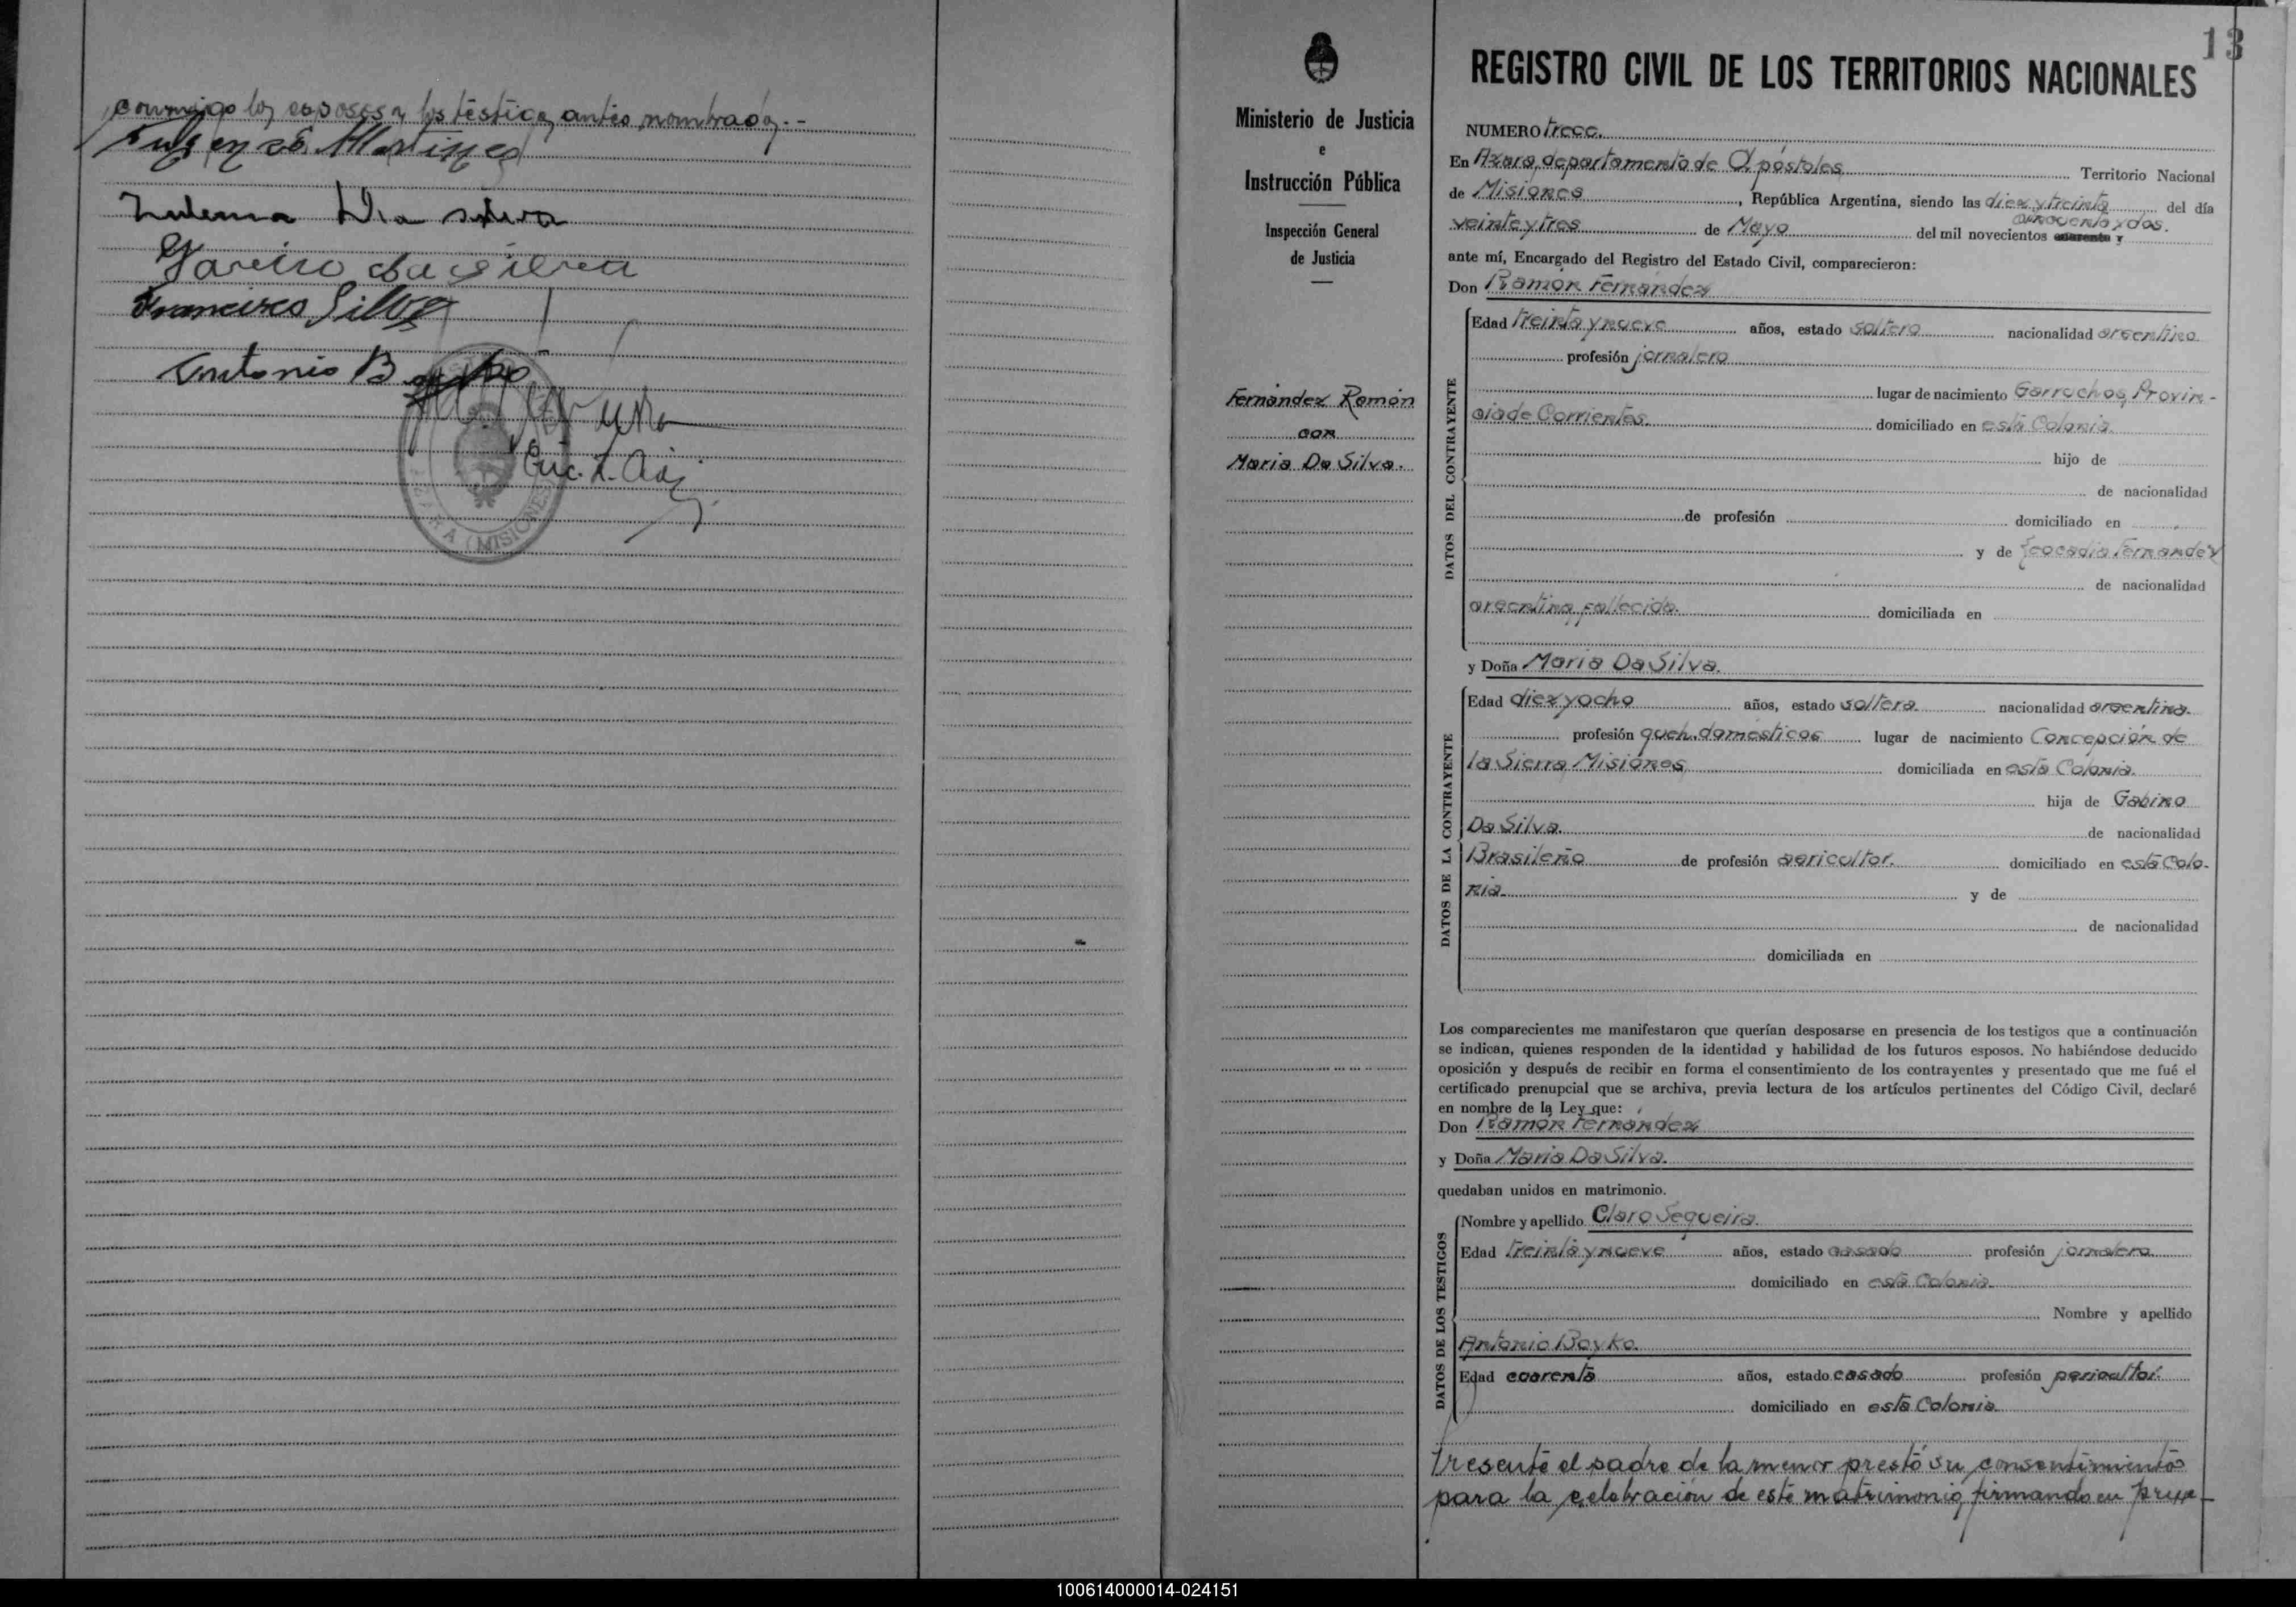 conmigo los esposos y los testigos antes nombrados.-
Martinez
Zulema Da Silva
da silva
Francisco Silva
Antonio B
Enc.
(MISIONES)
13
Ministerio de Justicia
e
Instrucción Pública
Inspección General
de Justicia
Fernández Ramón
con
Maria Da Silva.
REGISTRO CIVIL DE LOS TERRITORIOS NACIONALES
NUMERO trece.
En Azara, departamento de Apóstoles Territorio Nacional
de Misiones, República Argentina, siendo las diez y treinta del día
cincuenta y dos.
veinte y tres de Mayo del mil novecientos cuarenta y
ante mí, Encargado del Registro del Estado Civil, comparecieron:
Don Ramón Fernández
DATOS DEL CONTRAYENTE
Edad treinta y nueve años, estado soltero nacionalidad argentino
profesión jornalero
lugar de nacimiento Garruchos, Provin-
cia de Corrientes. domiciliado en esta Colonia.
hijo de
de nacionalidad
de profesión domiciliado en
y de Leocadia Fernandez
de nacionalidad
argentina, fallecida. domiciliada en
y Doña Maria Da Silva.
DATOS DE LA CONTRAYENTE
Edad diez y ocho años, estado soltera. nacionalidad argentina.
profesión queh. domesticos lugar de nacimiento Concepción de
la Sierra Misiones domiciliada en esta Colonia.
hija de Gabino
Da Silva. de nacionalidad
Brasileño de profesión agricultor. domiciliado en esta Colo-
nia. y de
de nacionalidad
domiciliada en
Los comparecientes me manifestaron que querían desposarse en presencia de los testigos que a continuación
se indican, quienes responden de la identidad y habilidad de los futuros esposos. No habiéndose deducido
oposición y después de recibir en forma el consentimiento de los contrayentes y presentado que me fué el
certificado prenupcial que se archiva, previa lectura de los artículos pertinentes del Código Civil, declaré
en nombre de la Ley que:
Don Ramón Fernández
y Doña Maria Da Silva.
quedaban unidos en matrimonio.
DATOS DE LOS TESTIGOS
Nombre y apellido Claro Sequeira.
Edad treinta y nueve años, estado casado profesión jornalero
domiciliado en esta Colonia.
Nombre y apellido
Antonio Boyko.
Edad cuarenta años, estado casado profesión
domiciliado en esta Colonia.
Presente el padre de la menor prestó su consentimiento
para la celebración de este matrimonio, firmando en prue-
100614000014-024151